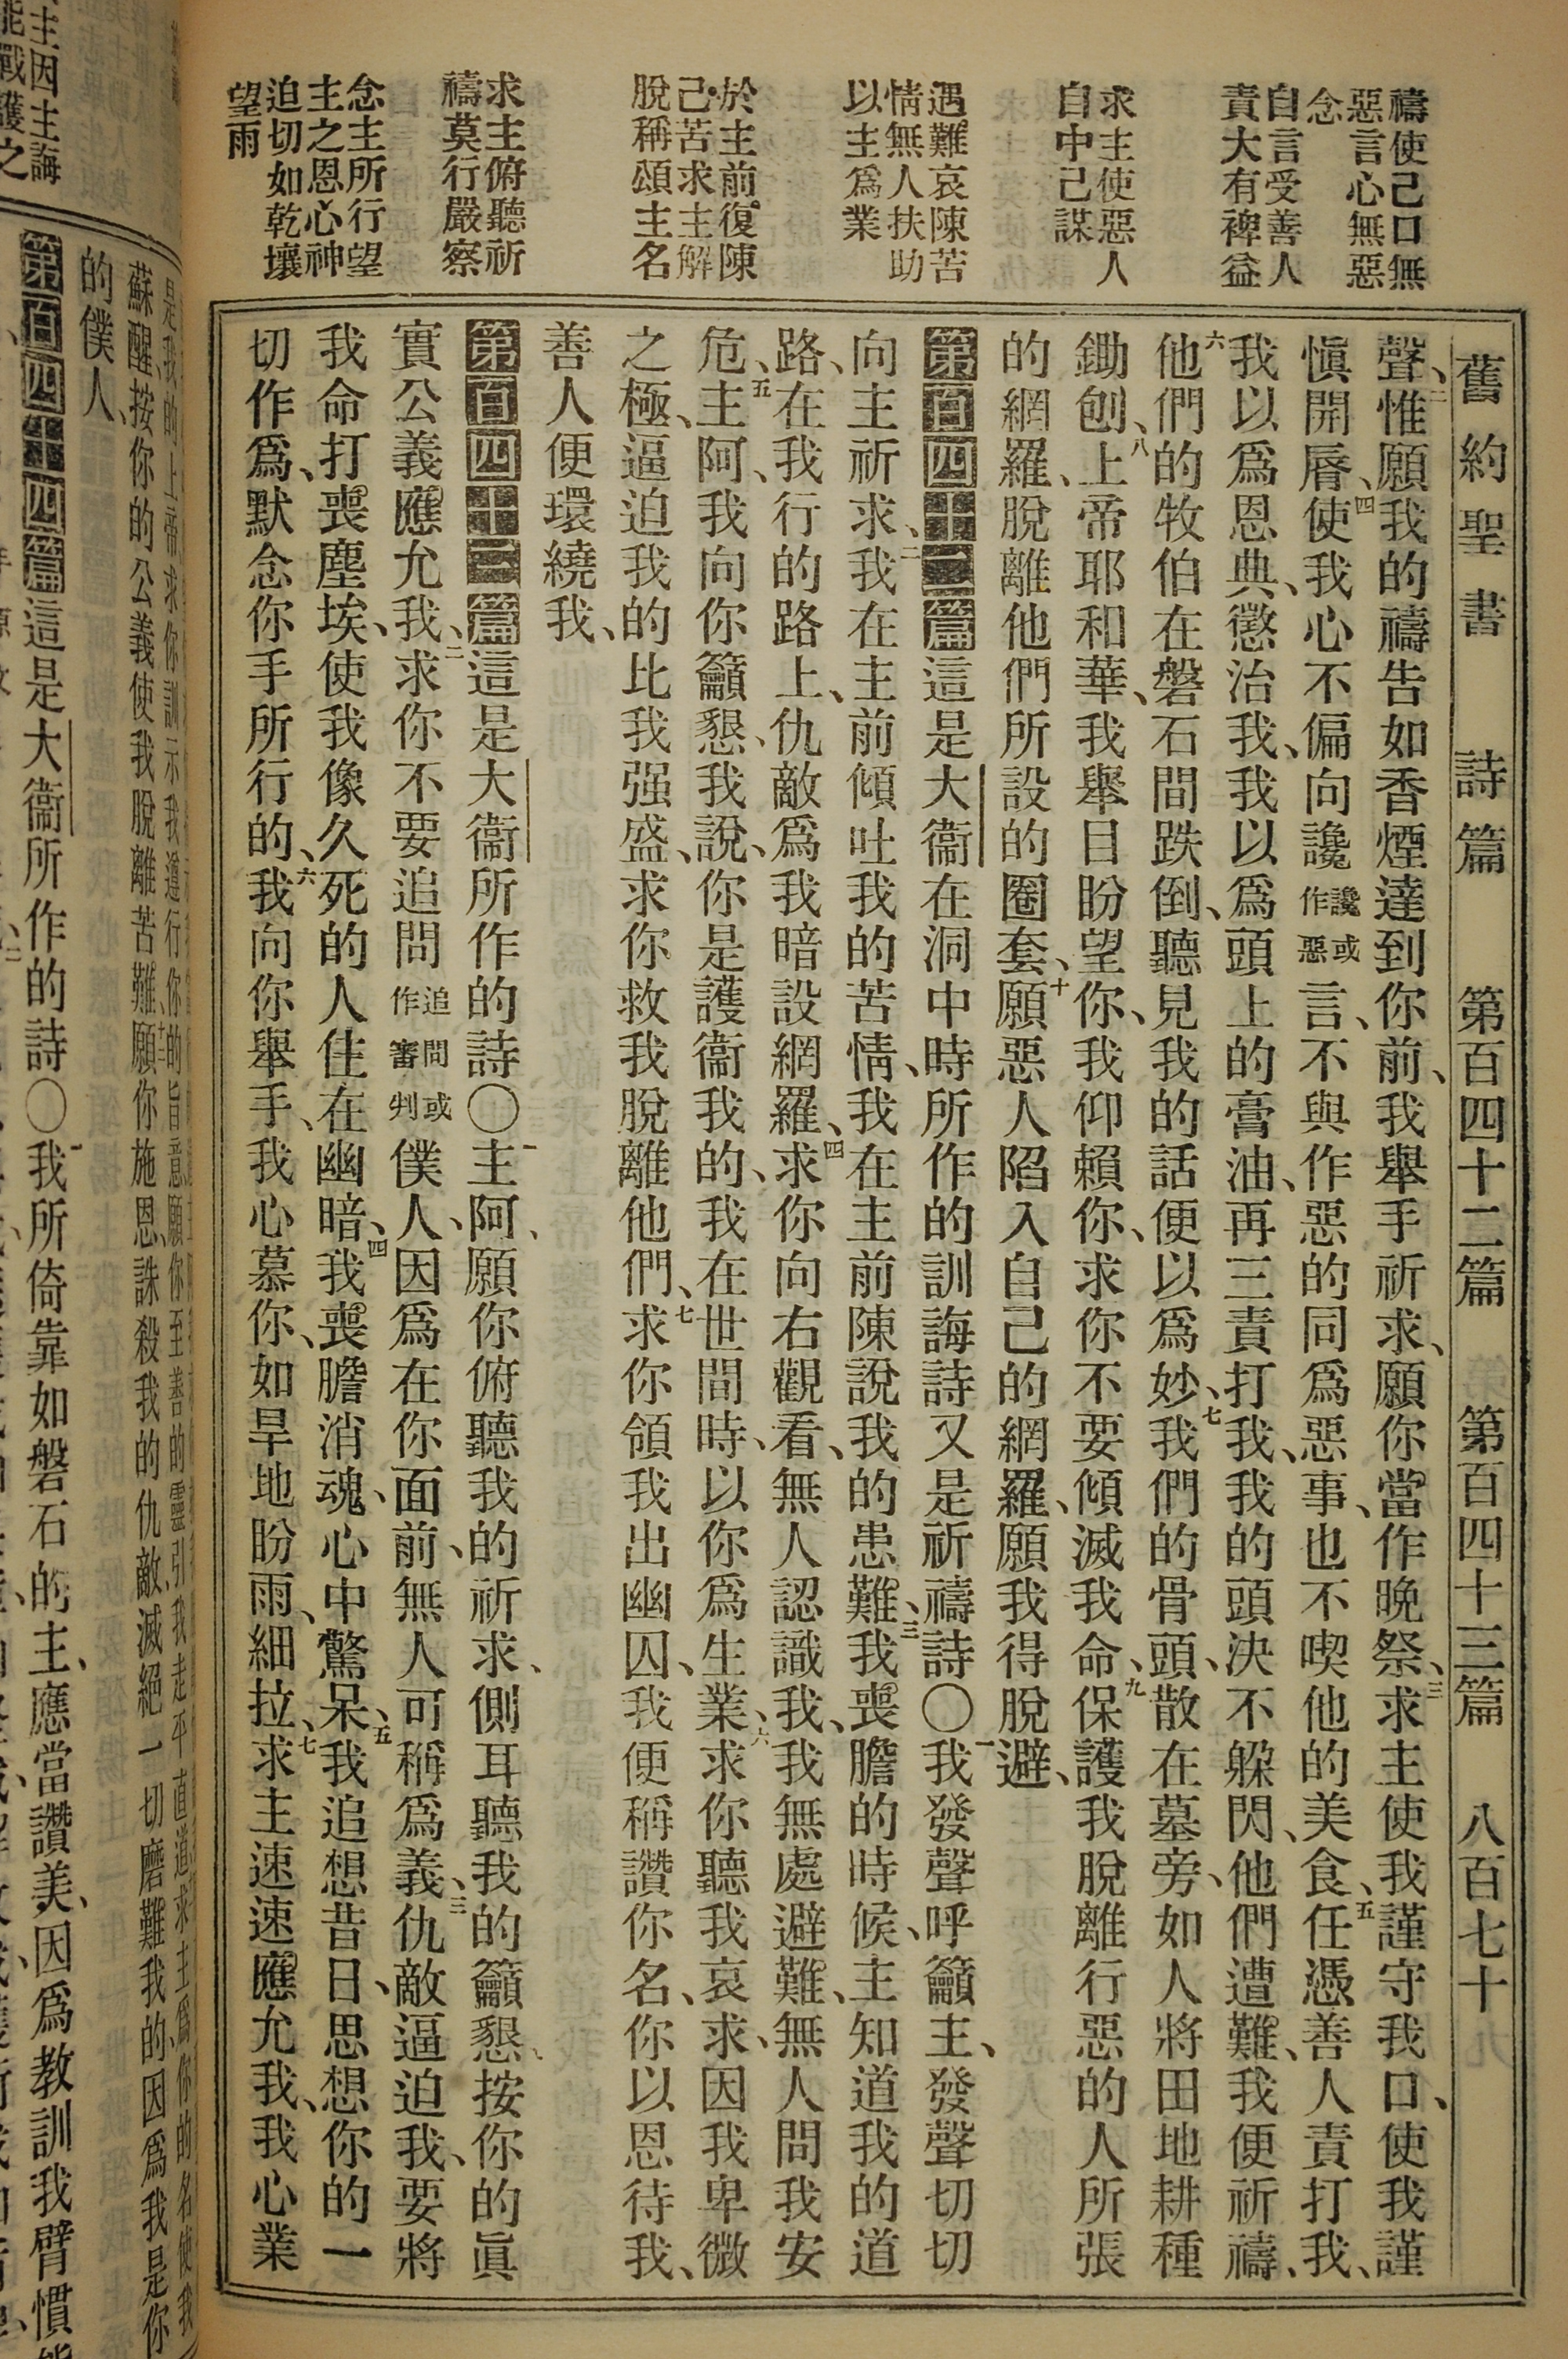 舊約聖書　詩篇　第百四十二篇　第百四十三篇　八百七十
禱使己口無
惡言心無惡
念
自言受善人
責大有裨益
求主使惡人
自中己謀
遇難哀陳苦
情無人扶助
以主爲業
於主前復陳
己苦求主解
脫稱頌主名
求主俯聽祈
禱莫行嚴察
念主所行望
主之恩心神
迫切如乾壤
望雨
聲、二惟願我的禱告如香煙達到你前、我舉手祈求、願你當作晚祭、三求主使我謹守我口、使我謹
愼開脣、四使我心不偏向讒讒或作惡言、不與作惡的同爲惡事、也不喫他的美食、五任憑善人責打我、
我以爲恩典、懲治我、我以爲頭上的膏油、再三責打我、我的頭決不躱閃、他們遭難、我便祈禱、
六他們的牧伯在磐石間跌倒、聽見我的話便以爲妙、七我們的骨頭、散在墓旁、如人將田地耕種
鋤刨、八上帝耶和華、我舉目盼望你、我仰賴你、求你不要傾滅我命、九保護我脫離行惡的人所張
的網羅、脫離他們所設的圈套、十願惡人陷入自己的網羅、願我得脫避、
第百四十二篇這是大衞在洞中時所作的訓誨詩又是祈禱詩〇一我發聲呼籲主、發聲切切
向主祈求、二我在主前傾吐我的苦情、我在主前陳說我的患難、三我喪膽的時候、主知道我的道
路、在我行的路上、仇敵爲我暗設網羅、四求你向右觀看、無人認識我、我無處避難、無人問我安
危、五主阿、我向你籲懇、我說、你是護衞我的、我在世間時、以你爲生業、六求你聽我哀求、因我卑微
之極、逼迫我的比我强盛、求你救我脫離他們、七求你領我出幽囚、我便稱讚你名、你以恩待我、
善人便環繞我、
第百四十三篇這是大衞所作的詩〇一主阿、願你俯聽我的祈求、側耳聽我的籲懇、按你的眞
實公義應允我、二求你不要追問追問或作審判僕人、因爲在你面前、無人可稱爲義、三仇敵逼迫我、要將
我命打喪塵埃、使我像久死的人住在幽暗、四我喪膽消魂、心中驚呆、五我追想昔日、思想你的一
切作爲、默念你手所行的、六我向你舉手、我心慕你、如旱地盼雨、細拉、七求主速速應允我、我心業
是我的上帝求你訓示我遵行你的旨意願你至善的靈引我走平直道求主爲你的名使我
蘇醒、按你的公義使我脫離苦難願你施恩誅殺我的仇敵滅絕一切磨難我的、因爲我是你
的僕人、
第百四十四篇這是大衞所作的詩〇一我所倚靠如磐石的主、應當讚美、因爲教訓我臂慣能
主因主誨
能戰護之